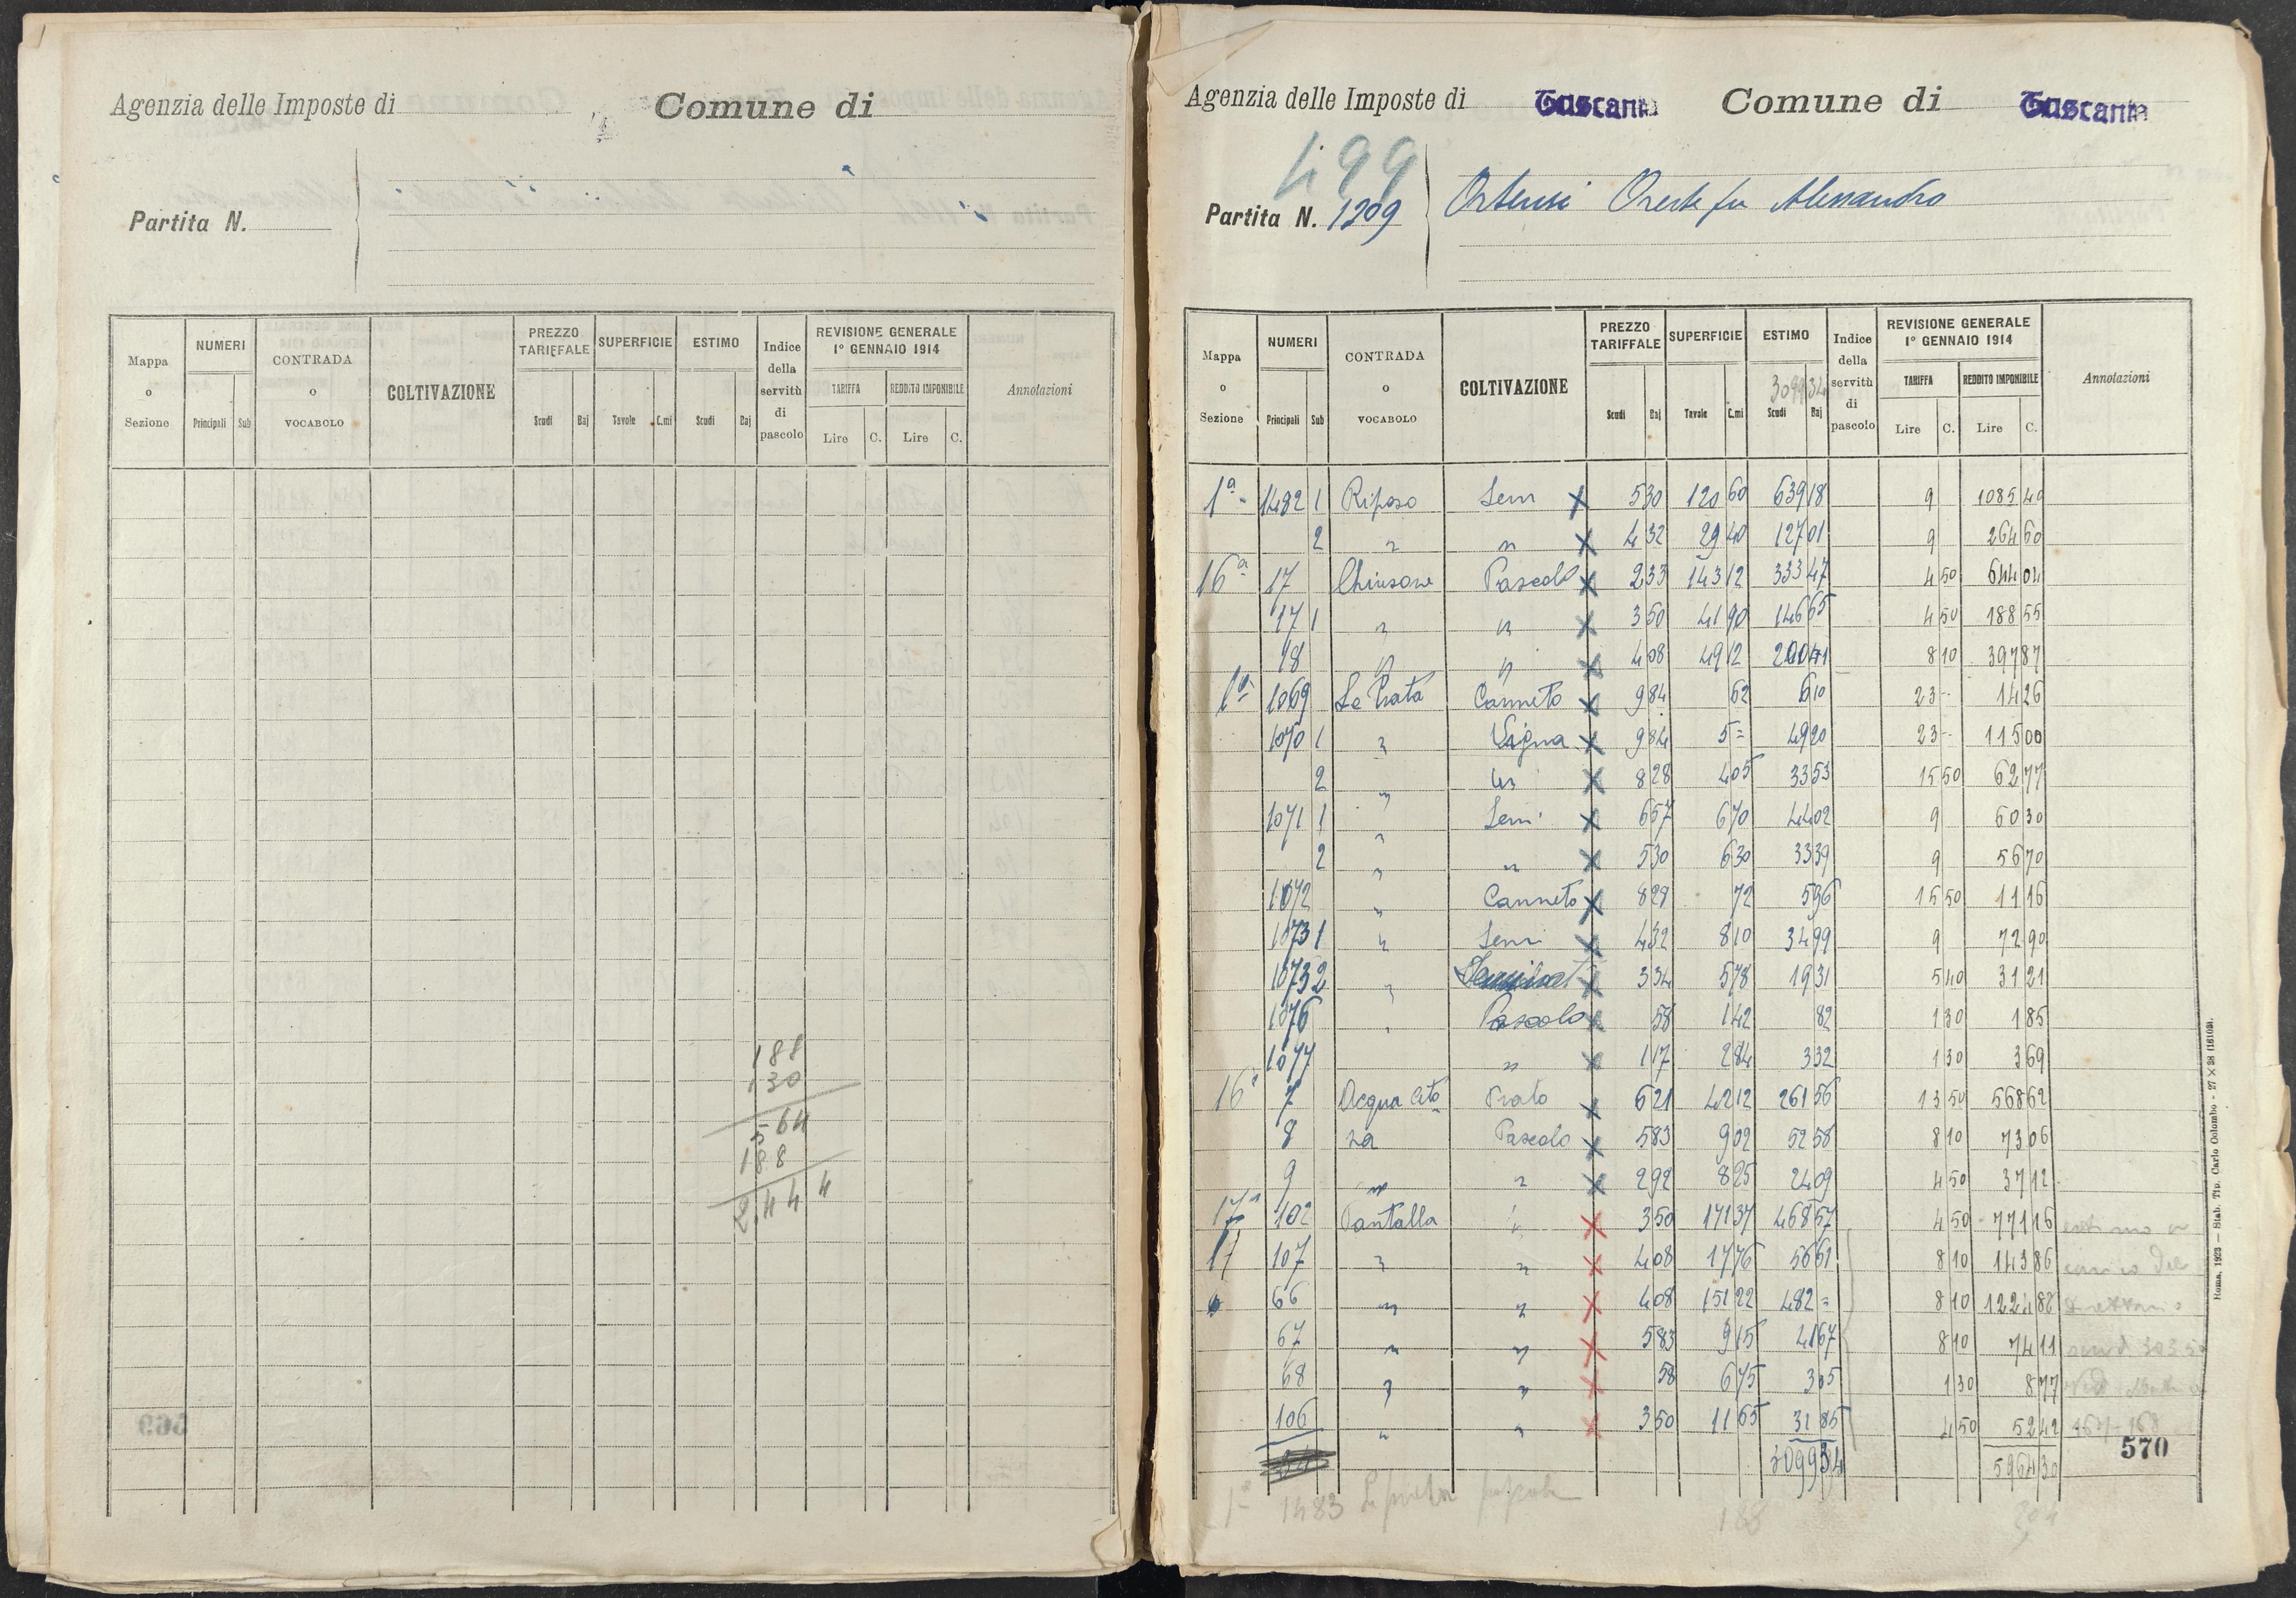 Agenzia delle Imposte di
Comune di
Partita N.
Mappa o Sezione
NUMERI
Principali Sub
CONTRADA o VOCABOLO
COLTIVAZIONE
PREZZO TARIFFALE
Scudi Baj
SUPERFICIE
Tavole C.mi
ESTIMO
Scudi Baj
Indice della servitù di pascolo
REVISIONE GENERALE 1° GENNAIO 1914
TARIFFA
Lire C.
REDDITO IMPONIBILE
Lire C.
Annotazioni
188
130
564
188
2.44 4
Agenzia delle Imposte di Tuscania Comune di Tuscania
499
Partita N. 1209 Ortensi Oreste fu Alessandro
Mappa o Sezione
NUMERI
Principali Sub
CONTRADA o VOCABOLO
COLTIVAZIONE
PREZZO TARIFFALE
Scudi Baj
SUPERFICIE
Tavole C.mi
ESTIMO
3099 34
Scudi Baj
Indice della servitù di pascolo
REVISIONE GENERALE 1° GENNAIO 1914
TARIFFA
Lire C.
REDDITO IMPONIBILE
Lire C.
Annotazioni
1ª 1482 1 Riposo Sem X 5 30 120 60 639 18 9 1085 40
2 " " X 4 32 29 40 127 01 9 264 60
16ª 17 Chiusone Pascolo X 2 33 143 12 333 47 4 50 644 04
17 1 " " X 3 50 41 90 146 65 4 50 188 55
18 " " X 4 08 49 12 200 41 8 10 397 87
1ª 1069 Le Prata Canneto X 9 84 62 6 10 23 - 14 26
1070 1 " Vigna X 9 84 5 = 49 20 23 - 115 00
2 " " X 8 28 4 05 33 53 15 50 62 77
1071 1 " Sem X 6 57 6 70 44 02 9 60 30
2 " " X 5 30 6 30 33 39 9 56 70
1072 " Canneto X 8 28 72 5 96 15 50 11 16
1073 1 " Sem X 4 32 8 10 34 99 9 72 90
1073 2 " X 3 34 5 78 19 31 5 40 31 21
1076 " Pascolo X 58 1 42 82 1 30 1 85
1077 " X 1 17 2 84 3 32 1 30 3 69
16ª 7 Acqua Cito Prato X 6 21 42 12 261 56 13 50 568 62
8 na Pascolo X 5 83 9 02 52 58 8 10 73 06
9 " " X 2 92 8 25 24 09 4 50 37 12
17ª 102 Pantalla " X 3 50 171 37 468 57 4 50 771 16
17 107 " " X 4 08 17 76 56 61 8 10 143 86
66 " " X 4 08 151 22 482 = 8 10 1224 88
67 " " X 5 83 9 15 41 67 8 10 74 11
68 " " X 58 6 75 3 05 1 30 8 77
106 " " X 3 50 11 65 31 85 4 50 52 42
3099 34 5964 30
570
1ª 1483 188
Roma, 1923 — Stab. Tip. Carlo Colombo - 27 × 38 (16103).